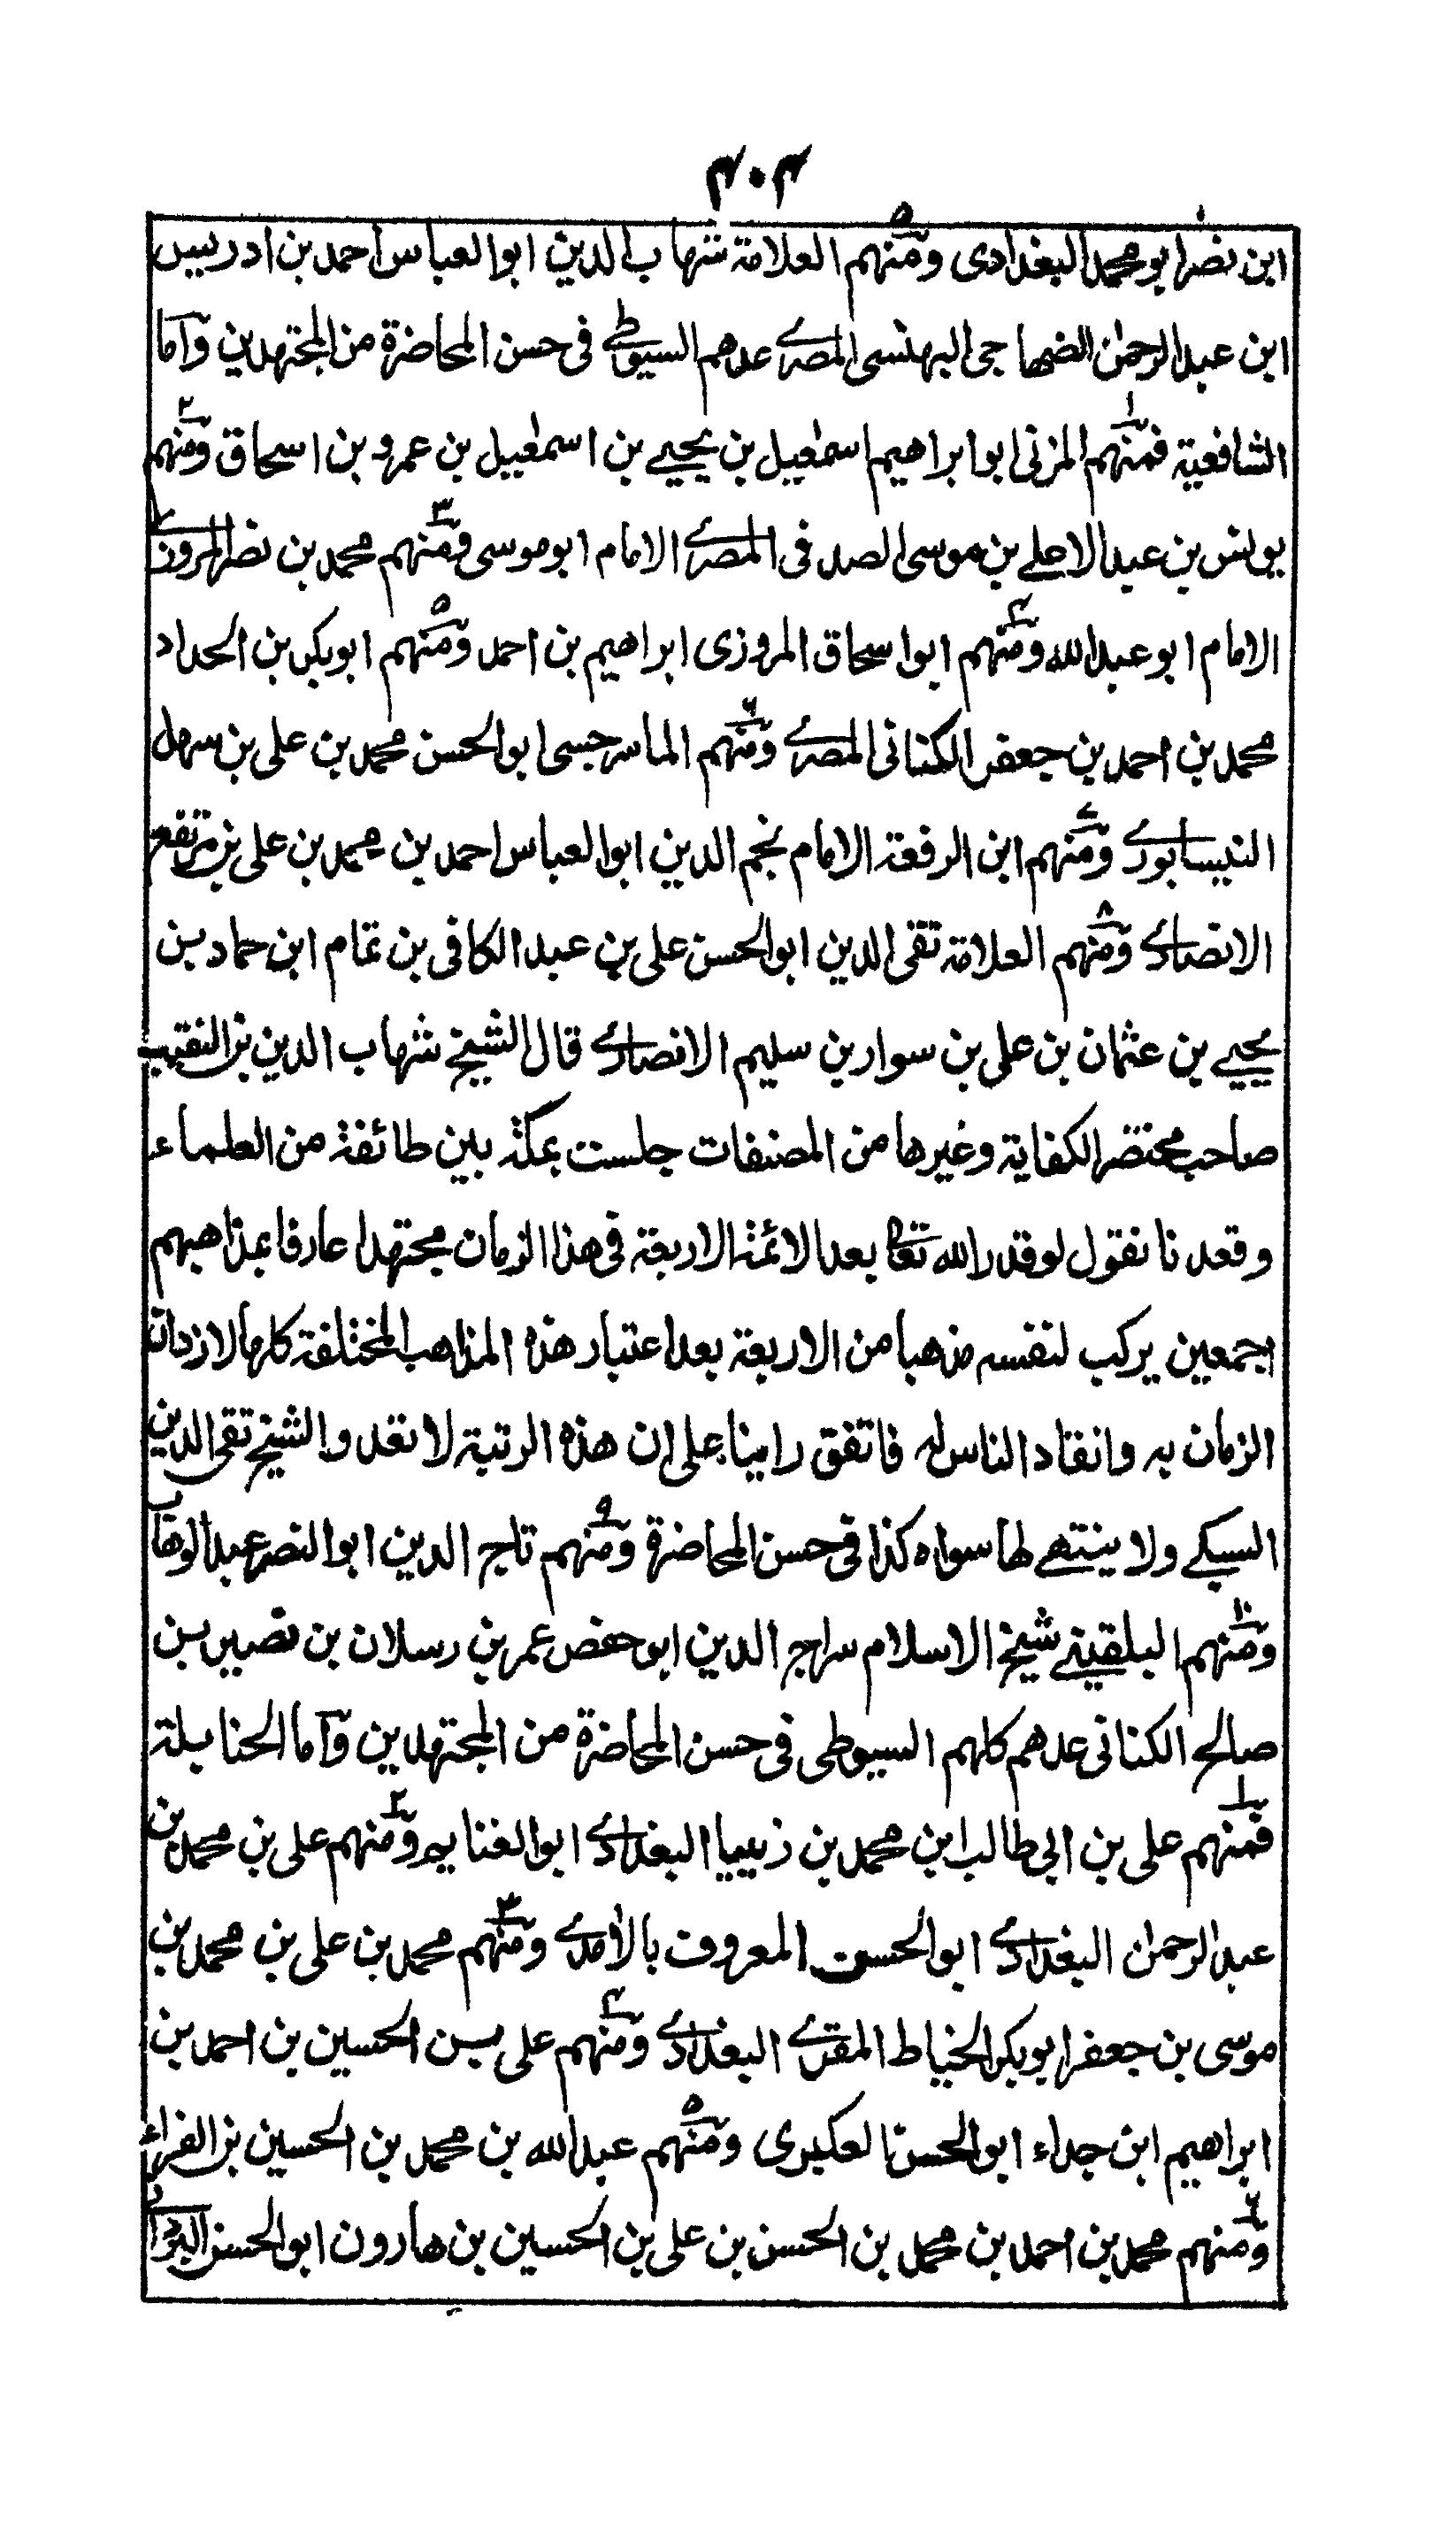 ۴۰۴
ابن نضر ابو محمد البغدادى ومنهم العلامة شهاب الدين ابو العباس احمد بن ادريس
ابن عبد الرحمن الضهاجى البهنسى المصرى عدهم السيوطى فى حسن المحاضرة من المجتهدين واما
الشافعية فمنهم المزنى ابو ابراهيم اسمعيل بن يحيى بن اسمعيل بن عمرو بن اسحاق ومنهم
يونس بن عبد الاعلى بن موسى الصدفى المصرى الامام ابو موسى ومنهم محمد بن نضر المروزى
الامام ابو عبد الله ومنهم ابو اسحاق المروزى ابراهيم بن احمد ومنهم ابو بكر بن الحداد
محمد بن احمد بن جعفر الكنانى المصرى ومنهم الماسرجسى ابو الحسن محمد بن على بن سهل
النيسابورى ومنهم ابن الرفعة الامام نجم الدين ابو العباس احمد بن محمد بن على بن مرتفع
الانصارى ومنهم العلامة تقى الدين ابو الحسن على بن عبد الكافى بن تمام ابن حماد بن
يحيى بن عثمان بن على بن سوار بن سليم الانصارى قال الشيخ شهاب الدين بن النقيب
صاحب مختصر الكفاية وغيرها من المصنفات جلست بمكة بين طائفة من العلماء
وقعدنا نقول لو قدر الله تعالى بعد الائمة الاربعة فى هذا الزمان مجتهدا عارفا بمذاهبهم
اجمعين يركب لنفسه مذهبا من الاربعة بعد اعتبار هذه المذاهب المختلفة كلها لازدان
الزمان به وانقاد الناس له فاتفق راينا على ان هذه الرتبة لا تعد والشيخ تقى الدين
السبكى ولا ينتهى لها سواه كذا فى حسن المحاضرة ومنهم تاج الدين ابو النصر عبد الوهاب
ومنهم البلقينى شيخ الاسلام سراج الدين ابو حفص عمر بن رسلان بن نصير بن
صالح الكنانى عدهم كلهم السيوطى فى حسن المحاضرة من المجتهدين واما الحنابلة
فمنهم على بن ابى طالب ابن محمد بن زبيبا البغدادى ابو الغنايم ومنهم على بن محمد بن
عبد الرحمن البغدادى ابو الحسن المعروف بالامدى ومنهم محمد بن على بن محمد بن
موسى بن جعفر ابو بكر الخياط المقرى البغدادى ومنهم على بن الحسين بن احمد بن
ابراهيم ابن جداء ابو الحسن العكبرى ومنهم عبد الله بن محمد بن الحسين بن الفراء
ومنهم محمد بن احمد بن محمد بن الحسن بن على بن الحسين بن هارون ابو الحسن البردانى